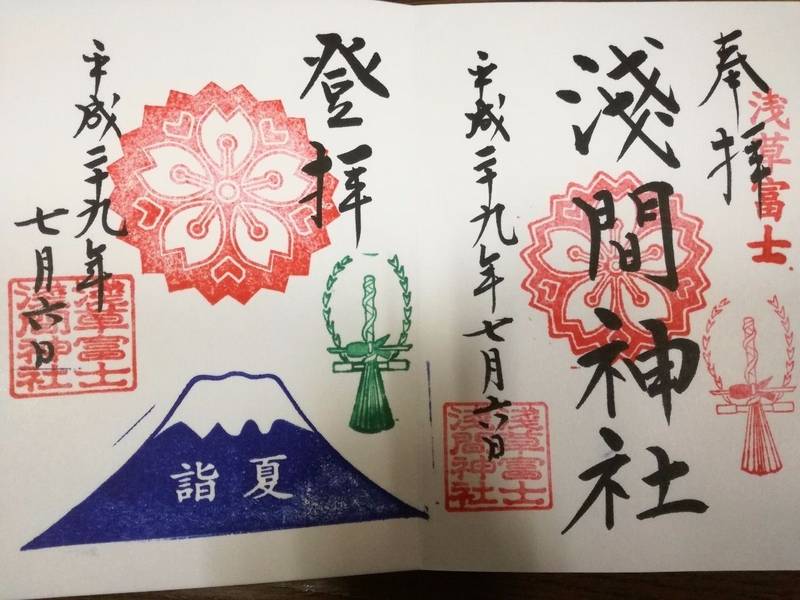 奉拝
浅草富士
淺間神社
平成二十九年七月六日
淺草富士
淺間神社
登拝
平成二十九年
七月六日
淺草富士
淺間神社
夏詣